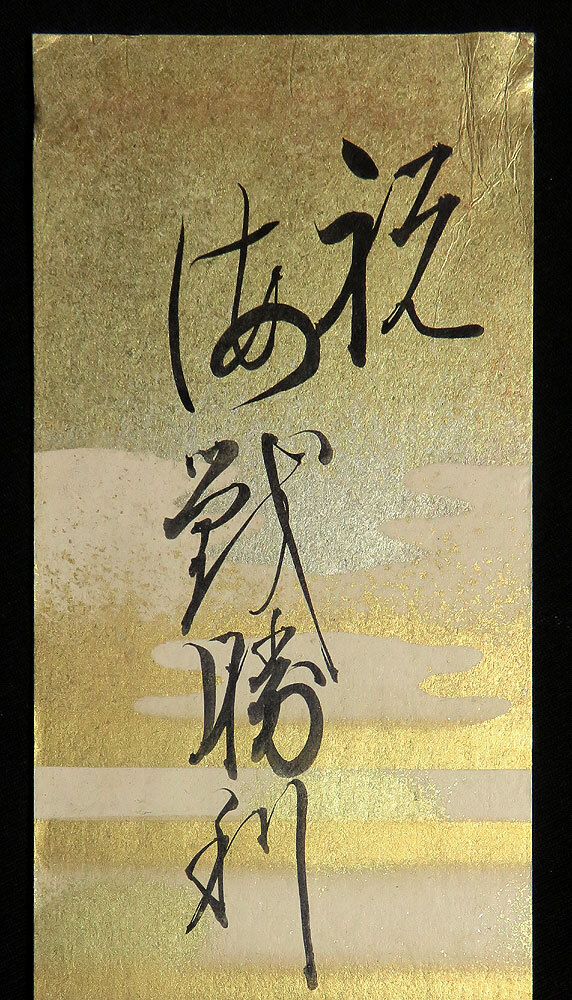 祝
海戦勝利